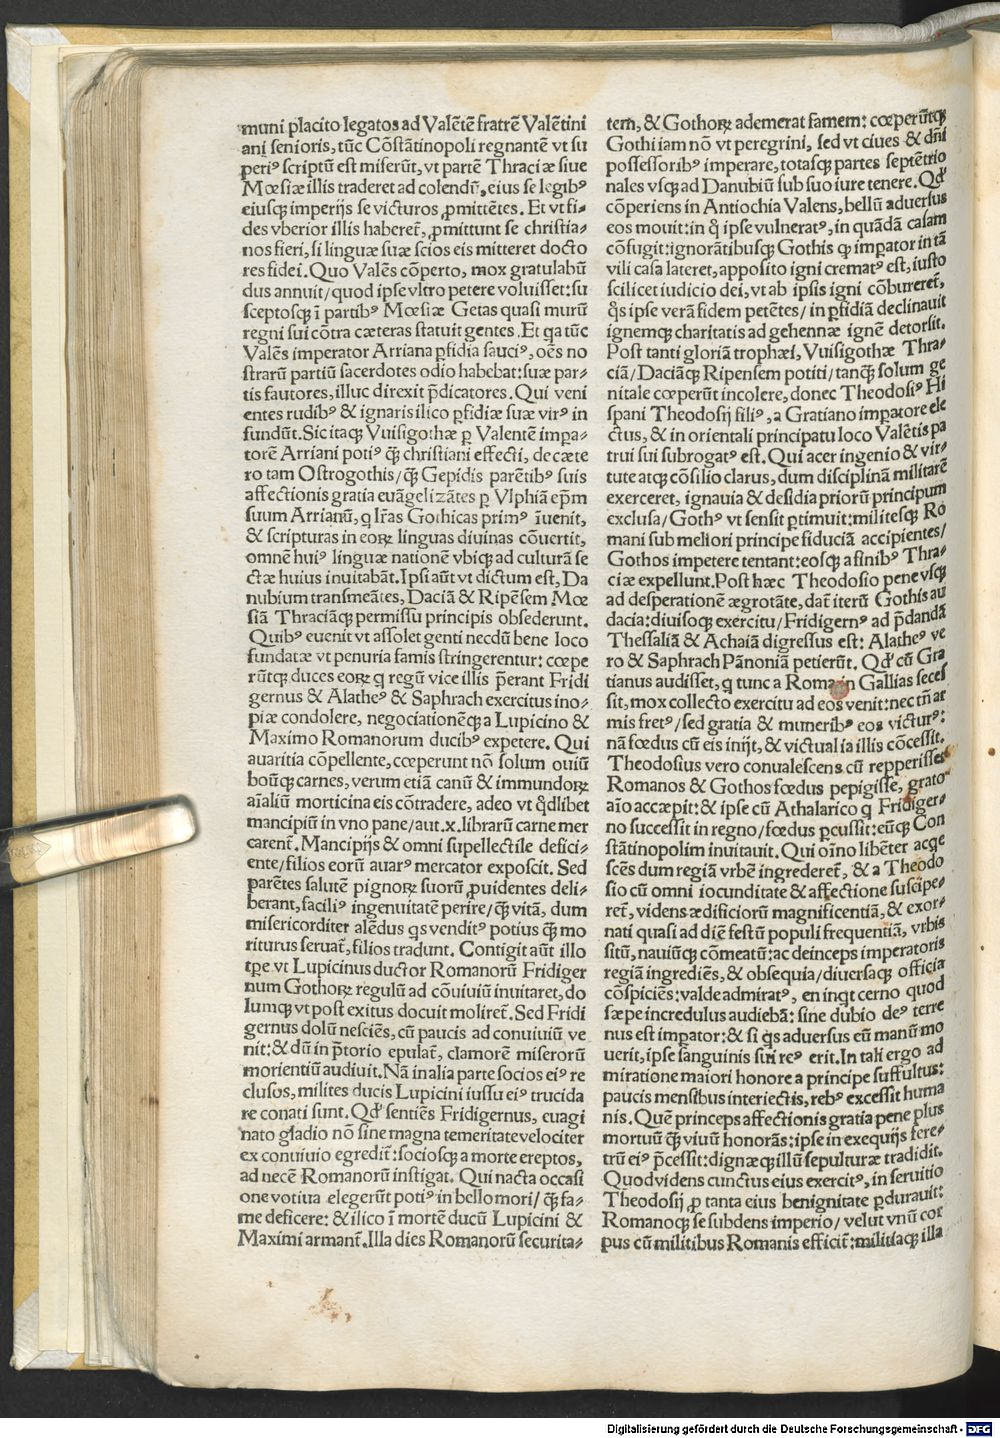 muni placito legatos ad Valētē fratrē Valētini
ani senioris, tūc Cōstātinopoli regnantē vt su
periꝰ scriptū est miserūt, vt partē Thraciæ siue
Mœsiæ illis traderet ad colendū, eius se legibꝰ
eiusqꝫ imperijs se victuros ꝓmittētes. Et vt fi⸗
des vberior illis haberet̄, ꝓmittunt se christia⸗
nos fieri, si linguæ suæ scios eis mitteret docto
res fidei. Quo Valēs cōperto, mox gratulabū
dus annuit/quod ipse vltro petere voluisset: su
sceptosqꝫ ī partibꝰ Mœsiæ Getas quasi murū
regni sui cōtra cæteras statuit gentes. Et qa tūc
Valēs imperator Arriana ꝑfidia sauciꝰ, oēs no
strarū partiū sacerdotes odio habebat: suæ par⸗
tis fautores, illuc direxit p̄dicatores. Qui veni
entes rudibꝰ & ignaris ilico ꝑfidiæ suæ virꝰ in
fundūt. Sic itaqꝫ Vuisigothæ ꝑ Valentē impa⸗
torē Arriani potiꝰ q̄ꝫ christiani effecti, de cæte
ro tam Ostrogothis/q̄ꝫ Gepidis parētibꝰ suis
affectionis gratia euāgelizātes ꝑ Vlphiā ep̄m
suum Arrianū, q lr̄as Gothicas primꝰ īuenit,
& scripturas in eoꝝ linguas diuinas cōuertit,
omnē huiꝰ linguæ nationē vbiqꝫ ad culturā se
ctæ huius inuitabāt. Ipsi aūt vt dictum est, Da
nubium transmeātes, Daciā & Ripēsem Mœ
siā Thraciāqꝫ permissu principis obsederunt.
Quibꝰ euenit vt assolet genti necdū bene loco
fundatæ vt penuria famis stringerentur: cœpe
rūtqꝫ duces eoꝝ q regū vice illis p̄erant Fridi
gernus & Alatheꝰ & Saphrach exercitus ino⸗
piæ condolere, negociationēqꝫ a Lupicino &
Maximo Romanorum ducibꝰ expetere. Qui
auaritia cōpellente, cœperunt nō solum ouiū
boūqꝫ carnes, verum etiā canū & immundoꝝ
aīaliū morticina eis cōtradere, adeo vt q̄dlibet
mancipiū in vno pane/aut.x.librarū carne mer
carent̄. Mancipijs & omni supellectile defici⸗
ente/filios eorū auarꝰ mercator exposcit. Sed
parētes salutē pignoꝝ suorū ꝓuidentes deli⸗
berant, faciliꝰ ingenuitatē perire/q̄ꝫ vitā, dum
misericorditer alēdus qs venditꝰ potius q̄ꝫ mo
riturus seruat̄, filios tradunt. Contigit aūt illo
tp̄e vt Lupicinus ductor Romanorū Fridiger
num Gothoꝝ regulū ad cōuiuiū inuitaret, do
lumqꝫ vt post exitus docuit moliret̄. Sed Fridi
gernus dolū nesciēs, cū paucis ad conuiuiū ve
nit: & dū in p̄torio epulat̄, clamorē miserorū
morientiū audiuit. Nā in alia parte socios eiꝰ re
clusos, milites ducis Lupicini iussu eiꝰ trucida
re conati sunt. Qd̄ sentiēs Fridigernus, euagi
nato gladio nō sine magna temeritate velociter
ex conuiuio egredit̄: sociosqꝫ a morte ereptos,
ad necē Romanorū instigat. Qui nacta occasi
one votiua elegerūt potiꝰ in bello mori/q̄ꝫ fa⸗
me deficere: & ilico ī mortē ducū Lupicini &
Maximi armant̄. Illa dies Romanorū securita⸗
tem, & Gothoꝝ ademerat famem: cœperūtqꝫ
Gothi iam nō vt peregrini, sed vt ciues & dn̄i
possessoribꝰ imperare, totasqꝫ partes septētrio
nales vsqꝫ ad Danubiū sub suo iure tenere. Qd̄
cōperiens in Antiochia Valens, bellū aduersus
eos mouit: in q̄ ipse vulneratꝰ, in quādā casam
cōfugit: ignorātibusqꝫ Gothis ꝙ impator in tā
vili casa lateret, apposito igni crematꝰ est, iusto
scilicet iudicio dei, vt ab ipsis igni cōbureret̄,
q̄s ipse verā fidem petētes/in ꝑfidiā declinauit
ignemqꝫ charitatis ad gehennæ ignē detorsit.
Post tanti gloriā trophæi, Vuisigothæ Thra⸗
ciā/Daciāqꝫ Ripensem potiti/tanqꝫ̄ solum ge
nitale cœperūt incolere, donec Theodosiꝰ Hi
spani Theodosij filiꝰ, a Gratiano impatore ele
ctus, & in orientali principatu loco Valētis pa
trui sui subrogatꝰ est. Qui acer ingenio & vir⸗
tute atqꝫ cōsilio clarus, dum disciplinā militarē
exerceret, ignauia & desidia priorū principum
exclusa/Gothꝰ vt sensit ꝑtimuit: militesqꝫ Ro
mani sub meliori principe fiduciā accipientes/
Gothos impetere tentant: eosqꝫ a finibꝰ Thra⸗
ciæ expellunt. Post hæc Theodosio pene vsqꝫ
ad desperationē ægrotāte, dat̄ iterū Gothis au
dacia: diuisoqꝫ exercitu/Fridigernꝰ ad p̄dandā
Thessaliā & Achaiā digressus est: Alatheꝰ ve
ro & Saphrach Pānoniā petierūt. Qd̄ cū Gra
tianus audisset, q tunc a Roma in Gallias seces
sit, mox collecto exercitu ad eos venit: nec tn̄ ar
mis fretꝰ/sed gratia & muneribꝰ eos victurꝰ:
nā fœdus cū eis inijt, & victualia illis cōcessit.
Theodosius vero conualescens cū repperisset
Romanos & Gothos fœdus pepigisse, grato
aīo accæpit: & ipse cū Athalarico q Fridiger⸗
no successit in regno/fœdus ꝑcussit: eūqꝫ Con
stātinopolim inuitauit. Qui oīno libēter acqe
scēs dum regiā vrbē ingrederet̄, & a Theodo
sio cū omni iocunditate & affectione suscipe⸗
ret̄, videns ædificiorū magnificentiā, & exor⸗
nati quasi ad diē festū populi frequentiā, vrbis
sitū, nauiūqꝫ cōmeatū: ac deinceps imperatoris
regiā ingrediēs, & obsequia/diuersaqꝫ officia
cōspiciēs: valde admiratꝰ, en inqt cerno quod
sæpe incredulus audiebā: sine dubio deꝰ terre
nus est impator: & si q̄s aduersus eū manū mo
uerit, ipse sanguinis sui reꝰ erit. In tali ergo ad
miratione maiori honore a principe suffultus:
paucis mensibus interiectis, rebꝰ excessit huma
nis. Quē princeps affectionis gratia pene plus
mortuū q̄ꝫ viuū honorās: ipse in exequijs fere⸗
trū eiꝰ p̄cessit: dignæqꝫ illū sepulturæ tradidit.
Quod videns cunctus eius exercitꝰ, in seruitio
Theodosij ꝓ tanta eius benignitate ꝑdurauit:
Romanoqꝫ se subdens imperio/velut vnū cor
pus cū militibus Romanis efficit̄: militiaqꝫ illa
Digitalisierung gefördert durch die Deutsche Forschungsgemeinschaft - DFG